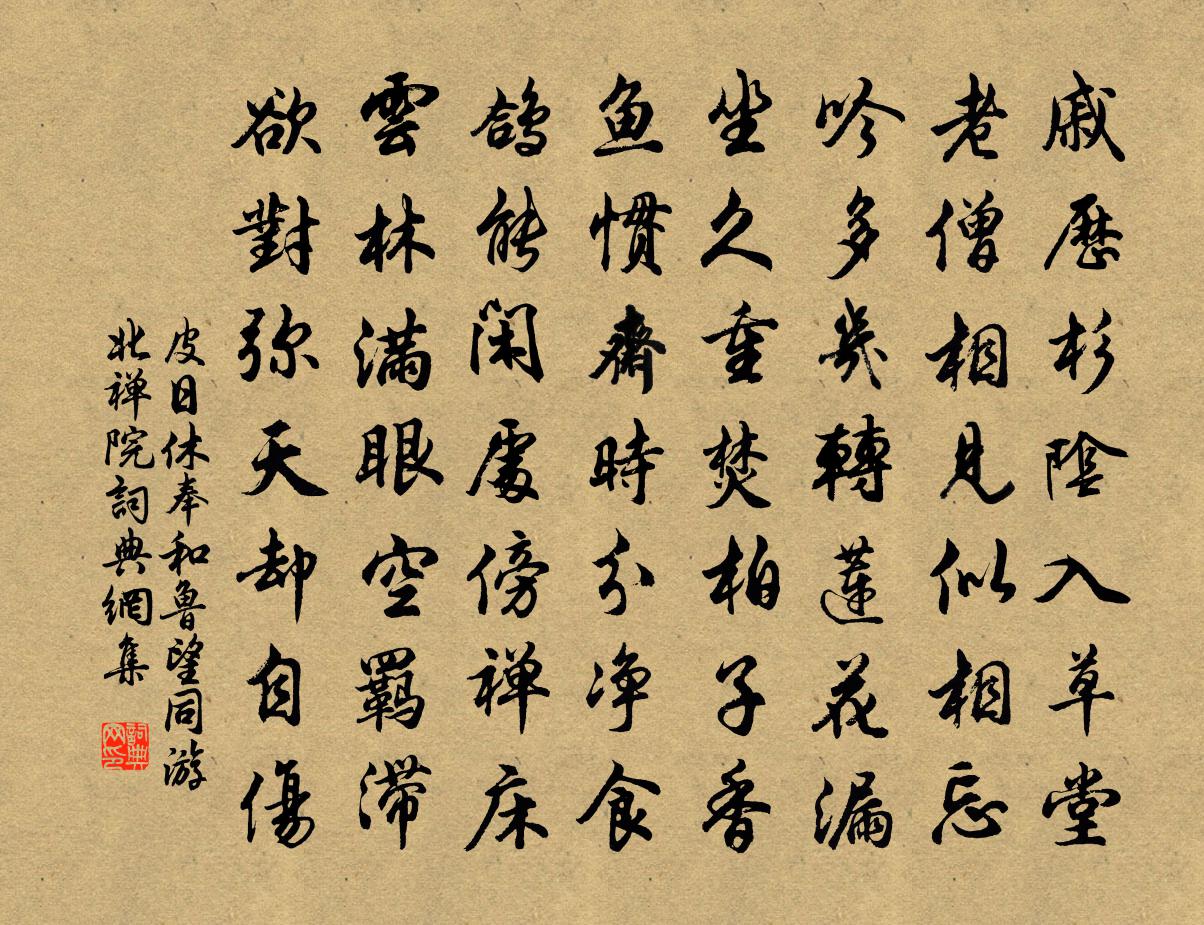 戚歷杉陰入草堂
老僧相見似相忘
吟多幾轉蓮花漏
坐久重焚柏子香
鱼慣齋時分净食
鴿能閑處傍禅床
雲林滿眼空羈滯
欲對弥天却自傷
皮日休奉和魯望同游
北禅院詞典網集
詞典
网印